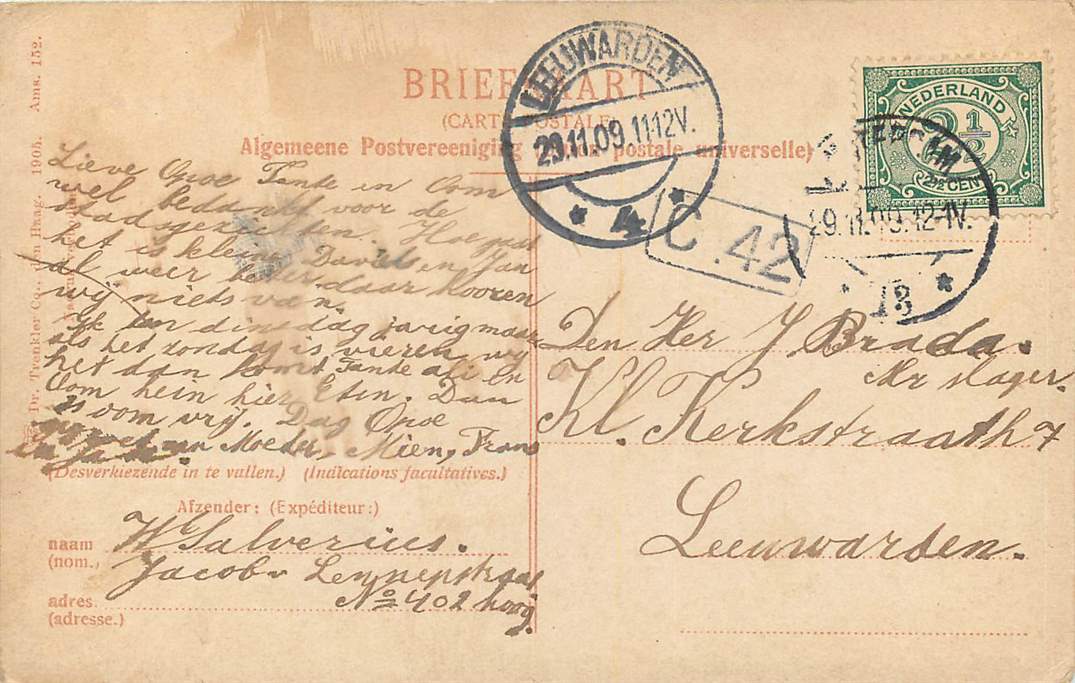 BRIEFKAART
(CARTE POSTALE)
Algemeene Postvereeniging (Union postale universelle)
LEEUWARDEN
29.11.09.11-12V.
* 4 *
C.42
NEDERLAND
2½
2½ CENT
AMSTERDAM
29.11.09.12-1V.
* 13 *
Dr. Trenkler Co., den Haag. 1905. Ams. 152.
Lieve Opoe Tante en Oom
wel bedankt voor de
stadsgezichten. Hoe gaat
het is kleine Davids en Jan
al weer beter daar hooren
wij niets van.
Ik ben dinsdag jarig maar
als het zondag is vieren wij
het dan komt Tante ali En
Oom hein hier Eten. Dan
is oom vrij. Dag Opoe
van Moeder, Mien, Frans
(Desverkiezende in te vullen.) (Indications facultatives.)
Afzender: (Expéditeur:)
naam W Salverius.
(nom.)
Jacob v Lennepstraat
adres. No 402 hoog.
(adresse.)
Den Her J. Brada.
Mr slager.
Kl. Kerkstraat h 7
Leeuwarden.